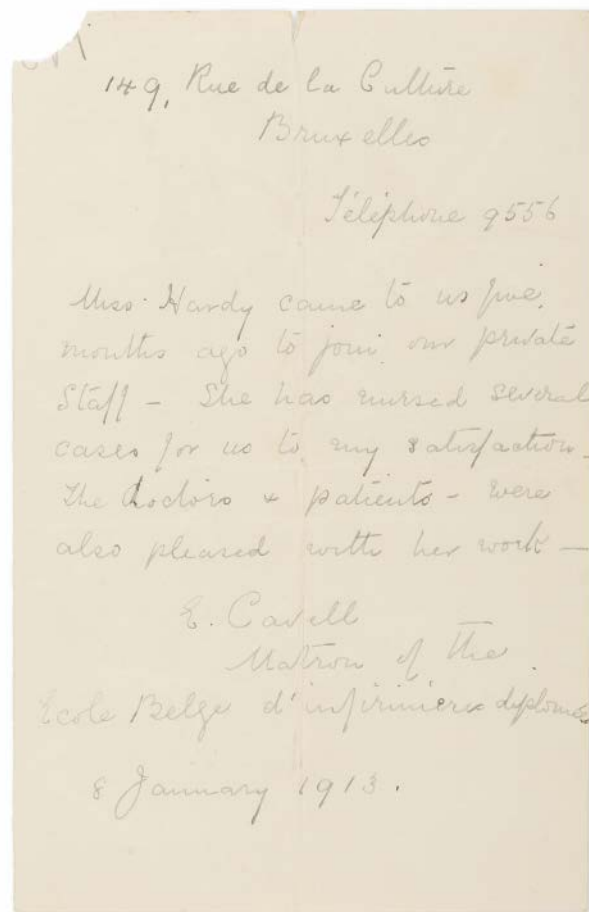 149, Rue de la Culture
Bruxelles
Téléphone 9556
Miss Hardy came to us five
months ago to join our private
Staff - She has nursed several
cases for us to my satisfaction -
The doctors & patients - were
also pleased with her work -
E. Cavell
Matron of the
Ecole Belge d'infirmières diplomées
8 January 1913.